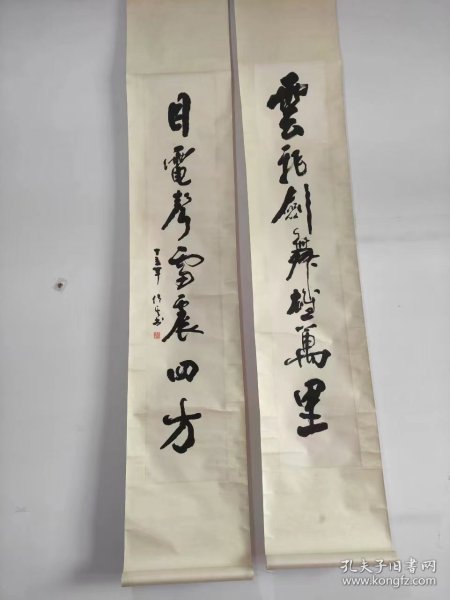 雲飛劍舞雄萬里
目電聲雷震四方
丁丑年
孔夫子旧书网
www.kongfz.com